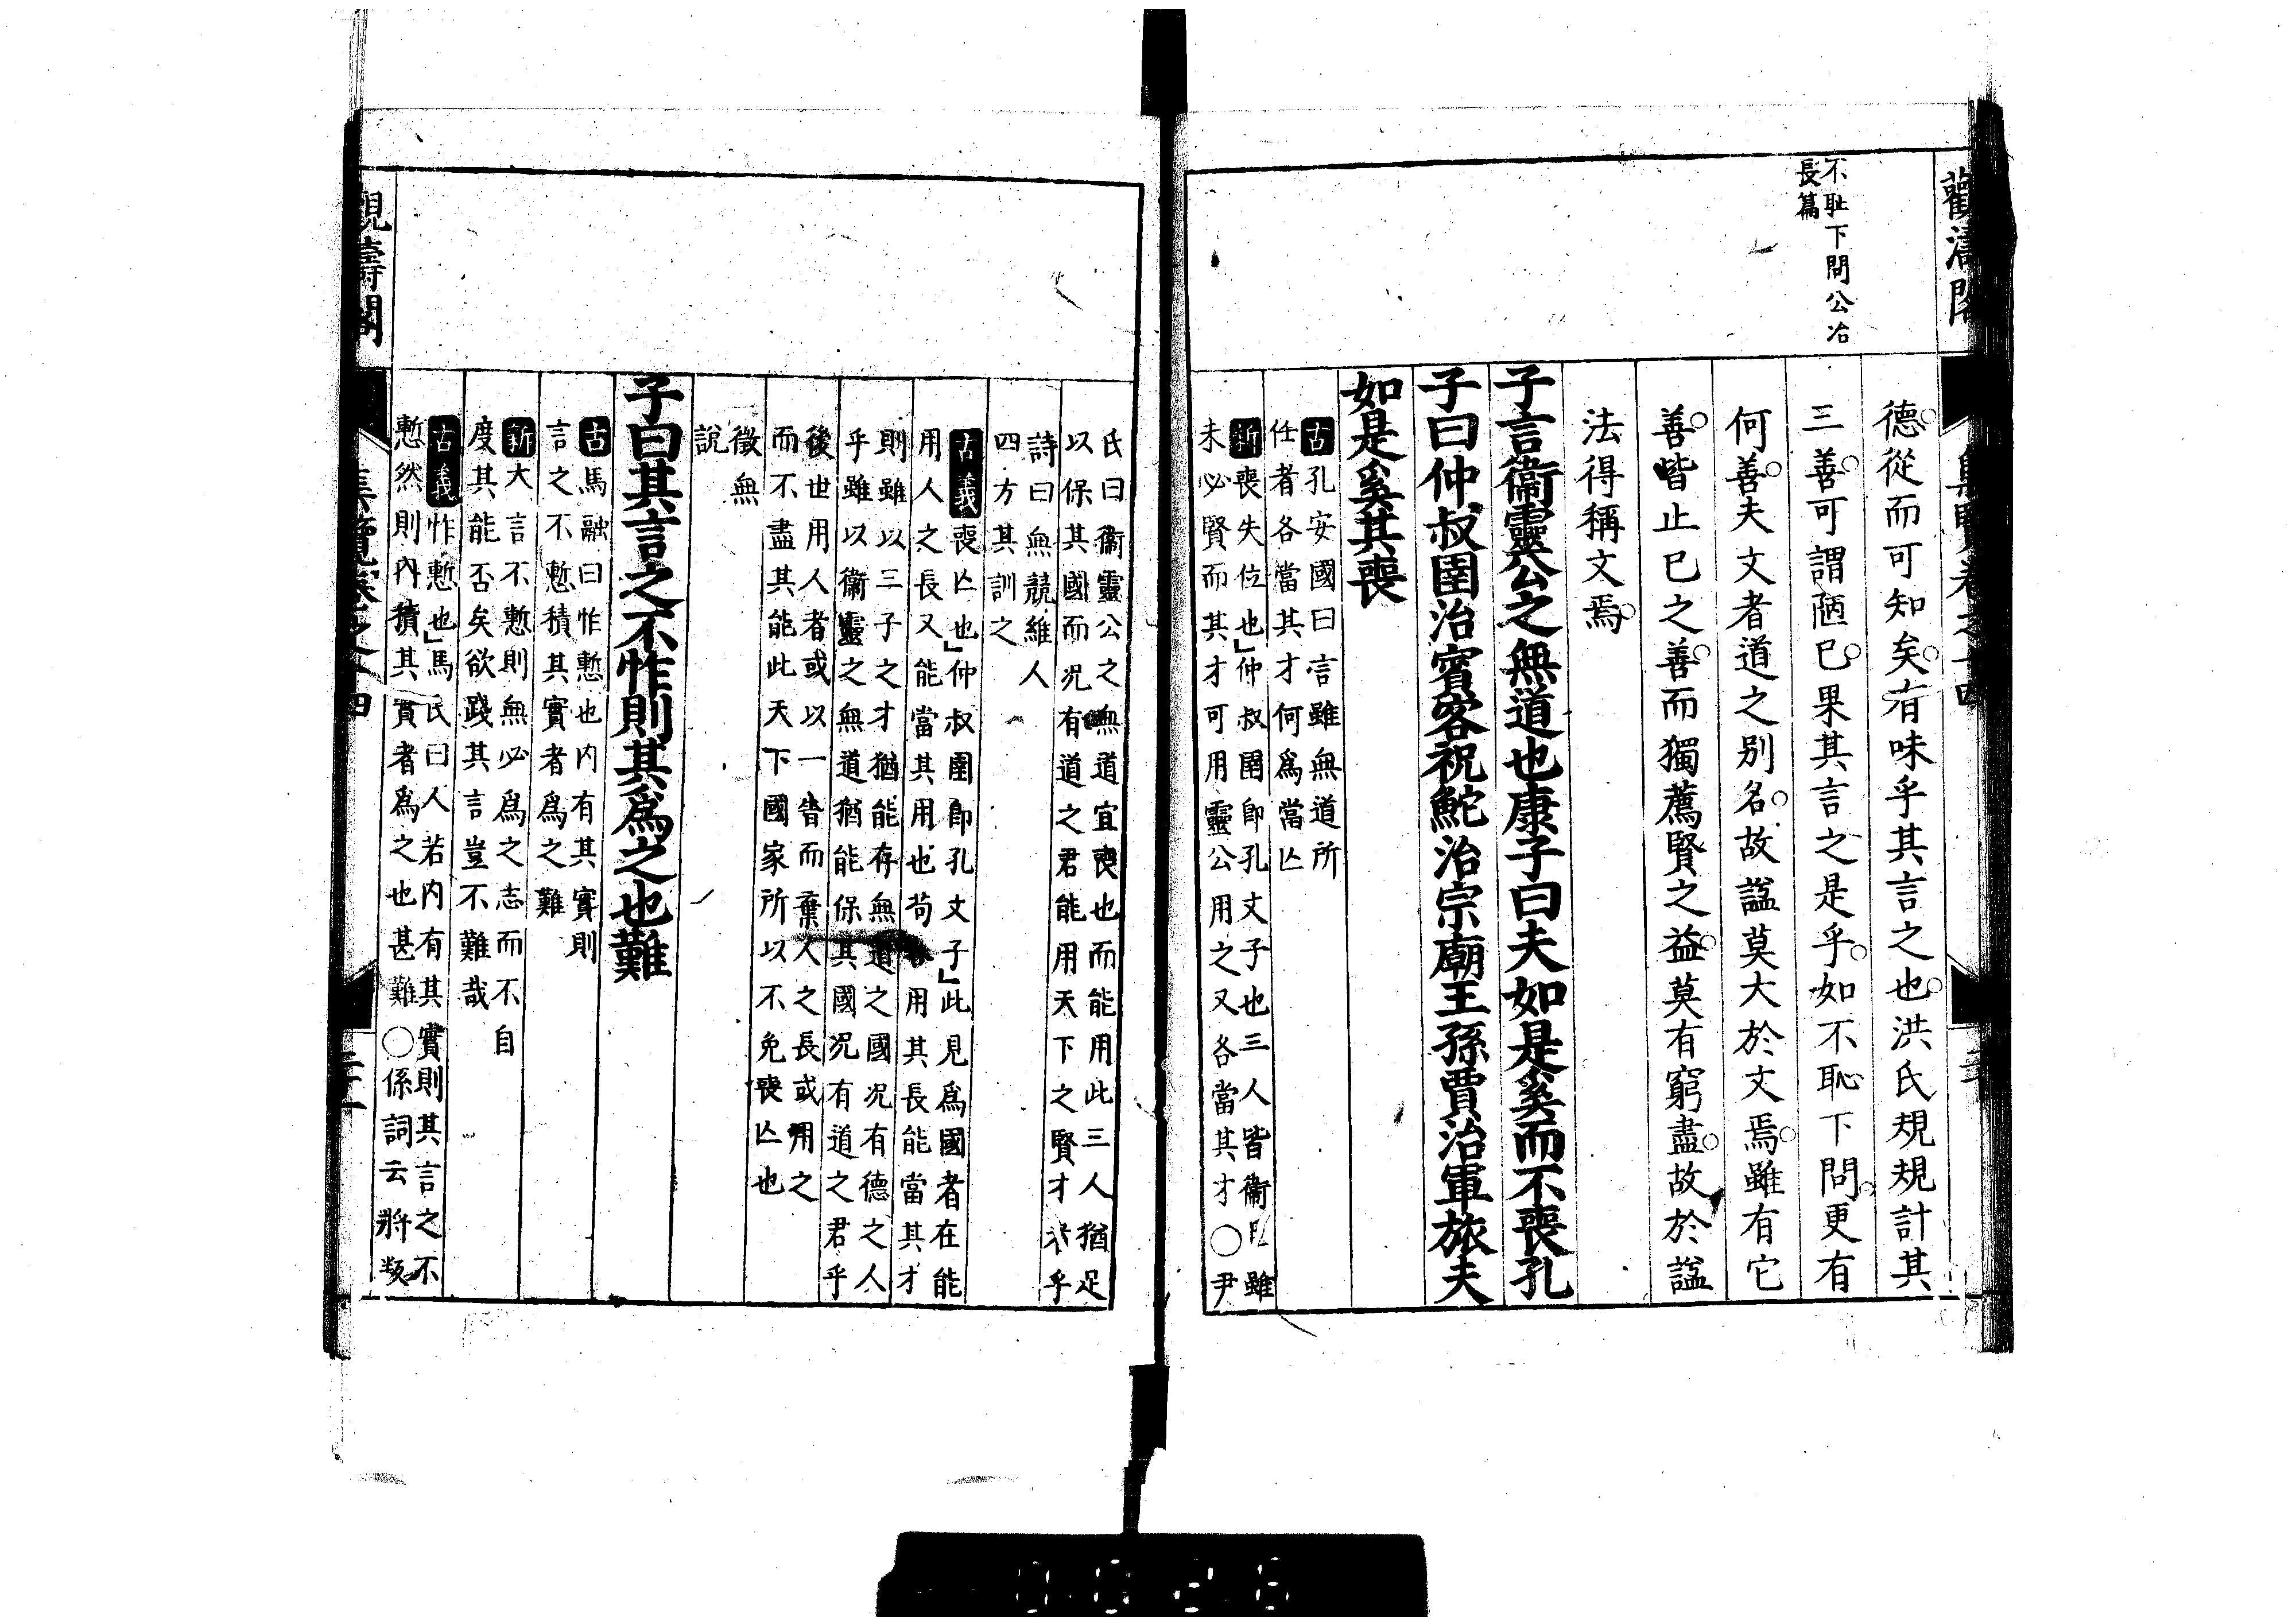 觀濤閣
不耻下問公冶
長篇
德從而可知矣有味乎其言之也洪氏規規計其
三善可謂陋已果其言之是乎如不恥下問更有
何善夫文者道之別名故謚莫大於文焉雖有它
善皆止已之善而獨薦賢之益莫有窮盡故於謚
法得稱文焉
子言衞靈公之無道也康子曰夫如是奚而不喪孔
子曰仲叔圉治賓客祝鮀治宗廟王孫賈治軍旅夫
如是奚其喪
古孔安國曰言雖無道所
任者各當其才何爲當亾
新喪失位也仲叔圉卽孔文子也三人皆衞臣雖
未必賢而其才可用靈公用之又各當其才○尹
氏曰衞靈公之無道宜喪也而能用此三人猶足
以保其國而況有道之君能用天下之賢才者乎
詩曰無競維人
四方其訓之
古義喪亾也仲叔圉卽孔文子此見爲國者在能
用人之長又能當其用也苟用其長能當其才
則雖以三子之才猶能存無道之國況有德之人
乎雖以衞靈之無道猶能保其國況有道之君乎
後世用人者或以一眚而棄人之長或用之
而不盡其能此天下國家所以不免喪亾也
徵無
說
子曰其言之不怍則其爲之也難
古馬融曰怍慙也内有其實則
言之不慙積其實者爲之難
新大言不慙則無必爲之志而不自
度其能否矣欲踐其言豈不難哉
古義怍慙也馬氏曰人若内有其實則其言之不
慙然則內積其實者爲之也甚難○係詞云將叛
觀濤閣
集覽卷之十四